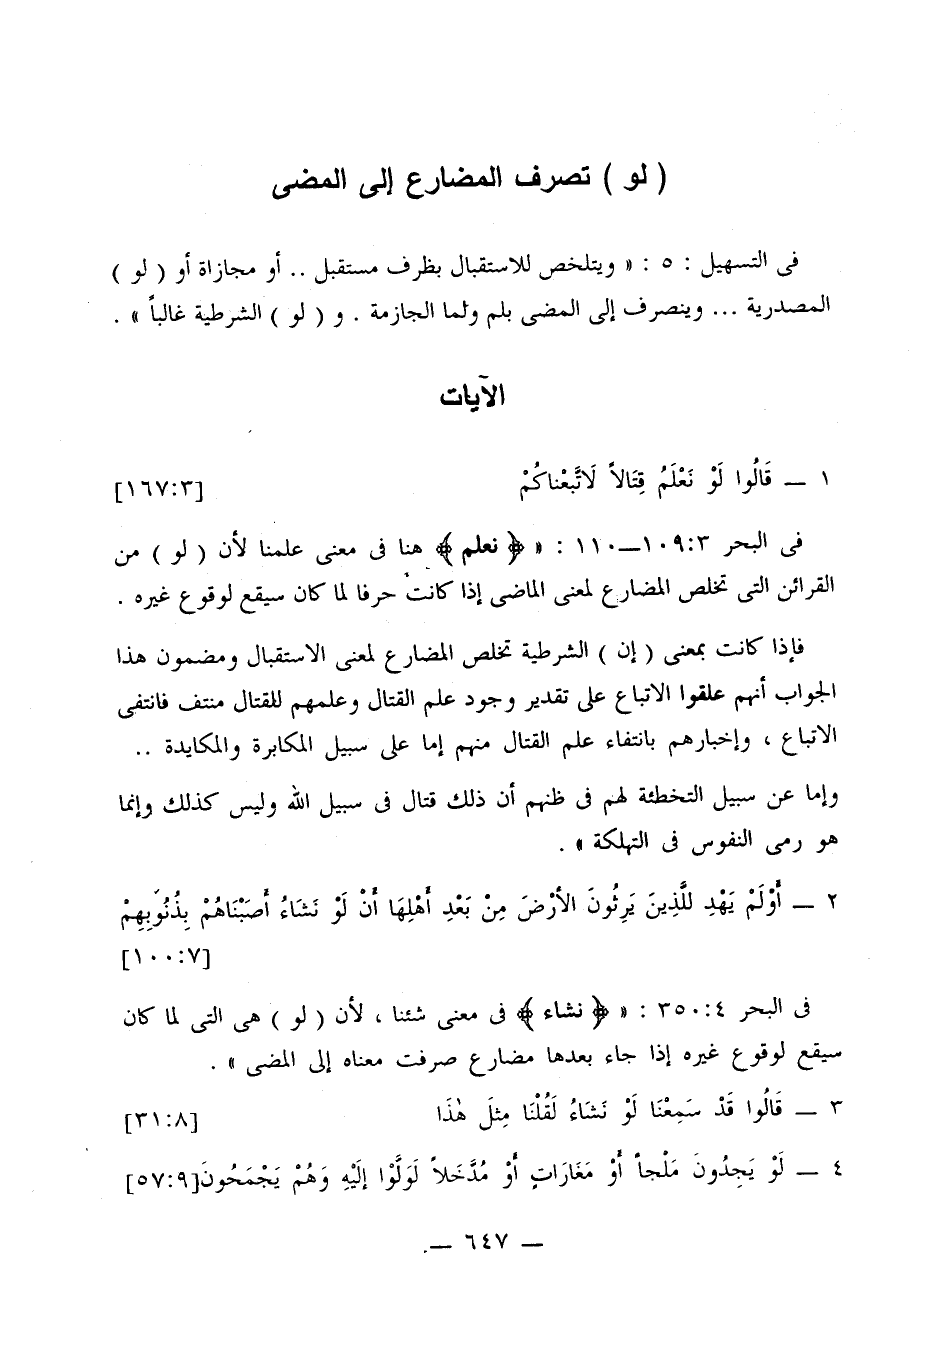 ( لو ) تصرف المضارع إلى المضى
فى التسهيل : ٥ : « ويتلخص للاستقبال بظرف مستقبل .. أو مجازاة أو ( لو )
المصدرية ... وينصرف إلى المضى بلم ولما الجازمة . و ( لو ) الشرطية غالباً » .
الآيات
١ ــ قَالُوا لَوْ نَعْلَمُ قِتَالاً لَاتَّبَعْنَاكُمْ [١٦٧:٣]
فى البحر ١٠٩:٣ــ١١٠ : « ﴿ نعلم ﴾ هنا فى معنى علمنا لأن ( لو ) من
القرائن التى تخلص المضارع لمعنى الماضى إذا كانت حرفا لما كان سيقع لوقوع غيره .
فإذا كانت بمعنى ( إن ) الشرطية تخلص المضارع لمعنى الاستقبال ومضمون هذا
الجواب أنهم علقوا الاتباع على تقدير وجود علم القتال وعلمهم للقتال منتف فانتفى
الاتباع ، وإخبارهم بانتفاء علم القتال منهم إما على سبيل المكابرة والمكايدة ..
وإما عن سبيل التخطئة لهم فى ظنهم أن ذلك قتال فى سبيل الله وليس كذلك وإنما
هو رمى النفوس فى التهلكة » .
٢ ــ أَوْلَمْ يَهْدِ للَّذِينَ يَرِثُونَ الأَرْضَ مِنْ بَعْدِ أَهْلِهَا أَنْ لَوْ نَشَاءُ أَصَبْنَاهُمْ بِذُنُوبِهِمْ
[١٠٠:٧]
فى البحر ٣٥٠:٤ : « ﴿ نشاء ﴾ فى معنى شئنا ، لأن ( لو ) هى التى لما كان
سيقع لوقوع غيره إذا جاء بعدها مضارع صرفت معناه إلى المضى » .
٣ ــ قَالُوا قَدْ سَمِعْنَا لَوْ نَشَاءُ لَقُلْنَا مِثْلَ هٰذَا [٣١:٨]
٤ ــ لَوْ يَجِدُونَ مَلْجَأً أَوْ مَغَارَاتٍ أَوْ مُدَّخَلاً لَوَلَّوْا إِلَيْهِ وَهُمْ يَجْمَحُونَ[٥٧:٩]
ــ ٦٤٧ ــ